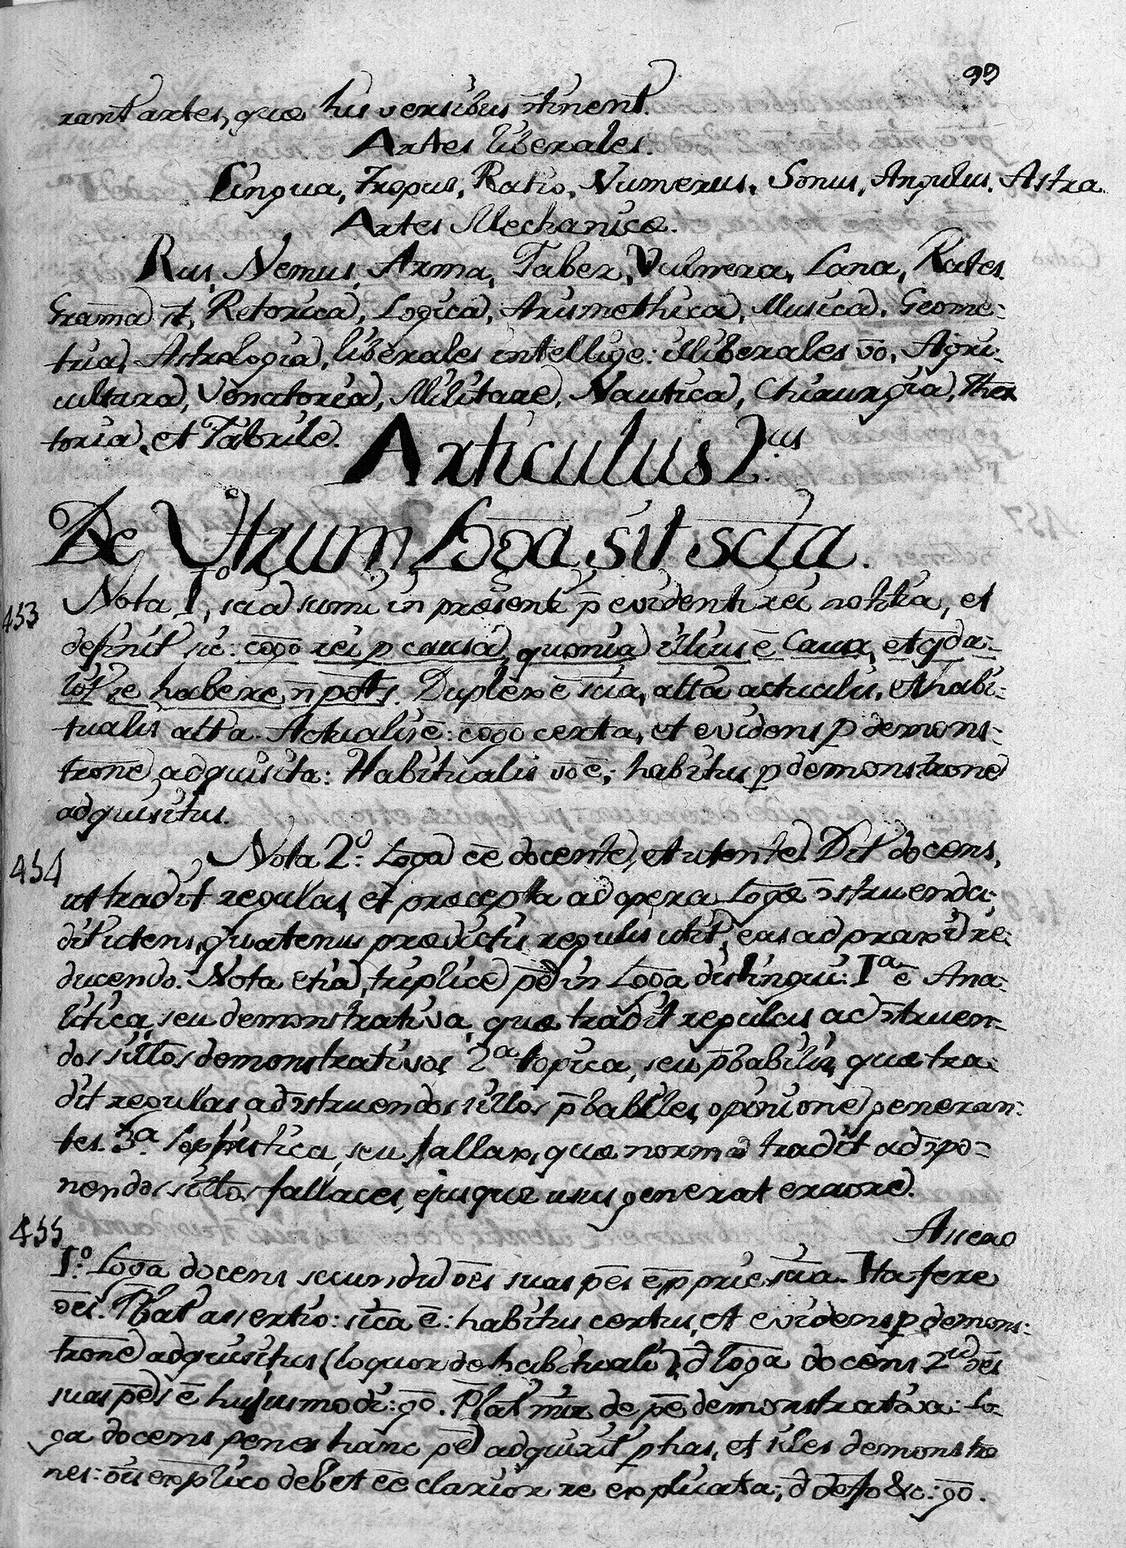 99
rant artes, quæ his versibus ɔtinent.
Artes liberales.
Lingua, Tropus, Ratio, Numerus, Sonus, Angulus, Astra
Artes Mechanicæ.
Rus, Nemus, Arma, Faber, Vulnera, Lana, Rates
Gramã it, Retorica, Logica, Arismethica, Musica, Geome-
tria, Astrologia, liberales intellige: illiberales vō, Agri-
cultura, Venatoria, Militare, Nautica, Chirurgia,
toria, et Fabrile.
Articulus 2.us
De Utrum Loga sit scia.
453
Nota 1º, scia sumi in præsenti p̄ evidenti rei notitia, et
definit sic: cogo rei p causa, quonia illius ē Causa, et qd a-
lit se habere n̄ potest. Duplex ē scia, alta actualis, et habi-
tualis alta. Actualis ē: cogo certa, et evidens p demons-
trone adquisita: Habitualis vō ē, habitus p demonstrone
adquisitus.
454
Nota 2º: Loga ēe docente, et utente. Dit docens,
ut tradit regulas, et præcepta ad opera Logæ ɔstruenda:
dit utens, quatenus prædictis regulis utit, eas ad praxi re-
ducendo. Nota etiã, triplice pē in Loga distingui: 1ª ē Ana-
litica, seu demonstrativa, quæ tradit regulas ad ɔstruen-
dos sillos demonstrativos 2ª topica, seu p̄babilis, quæ tra-
dit regulas ad ɔstruendos sillos p̄babiles, opinione generan-
tes. 3ª sophistica, seu fallax, quæ norma tradit ad ɔpo-
nendos sillos fallaces, ejusque usus generat errore.
455
Assero
1º: Loga docens secundu ōes suas pēs ē p̄prie scia. Ita fere
ōes. Pbat assertio: scia ē: habitus certus, et evidens p demons-
trone adquisitus (loquor de habituali), đ loga docens 2ũ ōes
suas pēs ē hujusmodi: gō. Pbat mir de pē demonstrativa: lo-
ga docens penes hanc pē adquirit p has, et iles demonstro
nes: ōis explico debet ēe clarior re explicata, đ &c: gō.